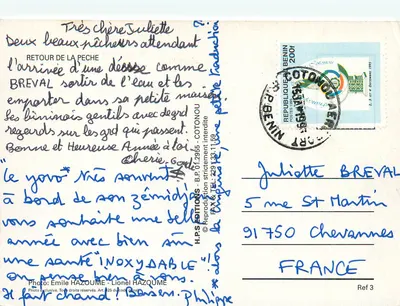 Très chère Juliette
Deux beaux pêcheurs attendant
RETOUR DE LA PECHE
l'arrivée d'une déesse comme
BREVAL sortir de l'eau et les
emporter dans sa petite maison
les béninois gentils avec de grd
regards sur les grd qui passent.
Bonne et Heureuse Année à toi
Cherie
"Le yovo" Très souvent
à bord de son zémidjan
vous souhaite une belle
année avec bien sûr
une santé "INOXYDABLE"!
on pense bien à vous.
Il fait chaud! Baisers. Philippe
Photo: Emile HAZOUME - Lionel HAZOUME
H.P.S EDITIONS - B.P. 01.2905 - COTONOU
© Reproduction strictement interdite
* alors la
une petite traduction?
REPUBLIQUE DU BENIN
200F
COTONOU
BENIN
Juliette BREVAL
5 rue St Martin
91750 Chevannes
FRANCE
Ref 3